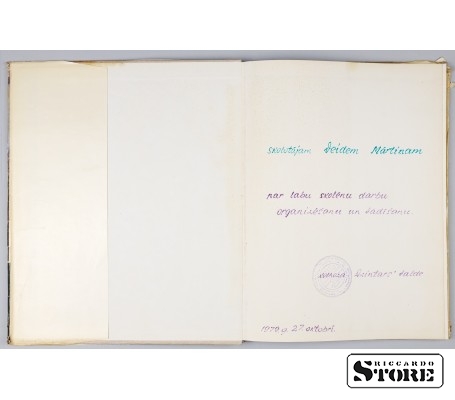 Skolotājam Veidem Mārtiņam
par labu skolēnu darbu
organizēšanu un vadīšanu
"Dzintars"
1970 g. 27. oktobrī.
RICCARDO
STORE